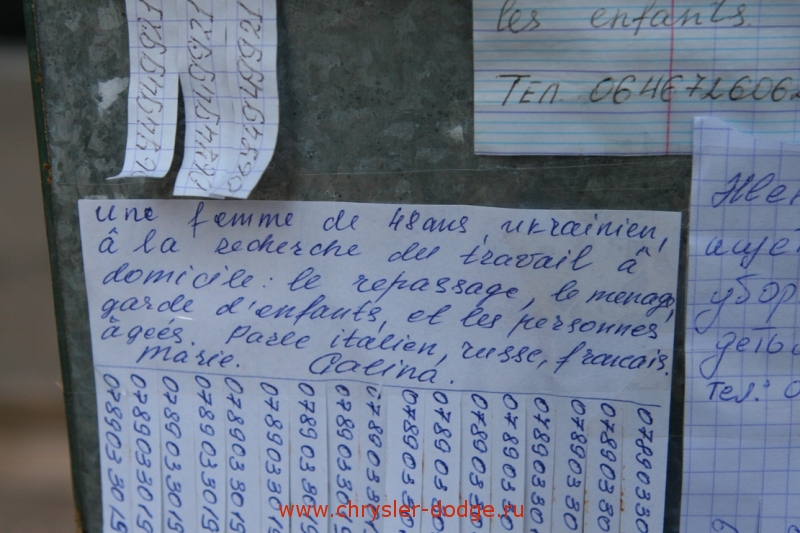 les enfants.
Тел. 064672606
une femme de 48 ans, ukrainien,
â la recherche du travail â
domicile: le repassage, le menage,
garde d'enfants, et les personnes
âgees. Parle italien, russe, francais.
Marie. Galina.
0789033019
0789033019
0789033019
0789033019
0789033019
078903301
07890330
078903301
078903301
07890330
07890330
07890330
07890330
0789033
0789033
0789033
0789033
ищет
убор
деть
тел.: 0
www.chrysler-dodge.ru